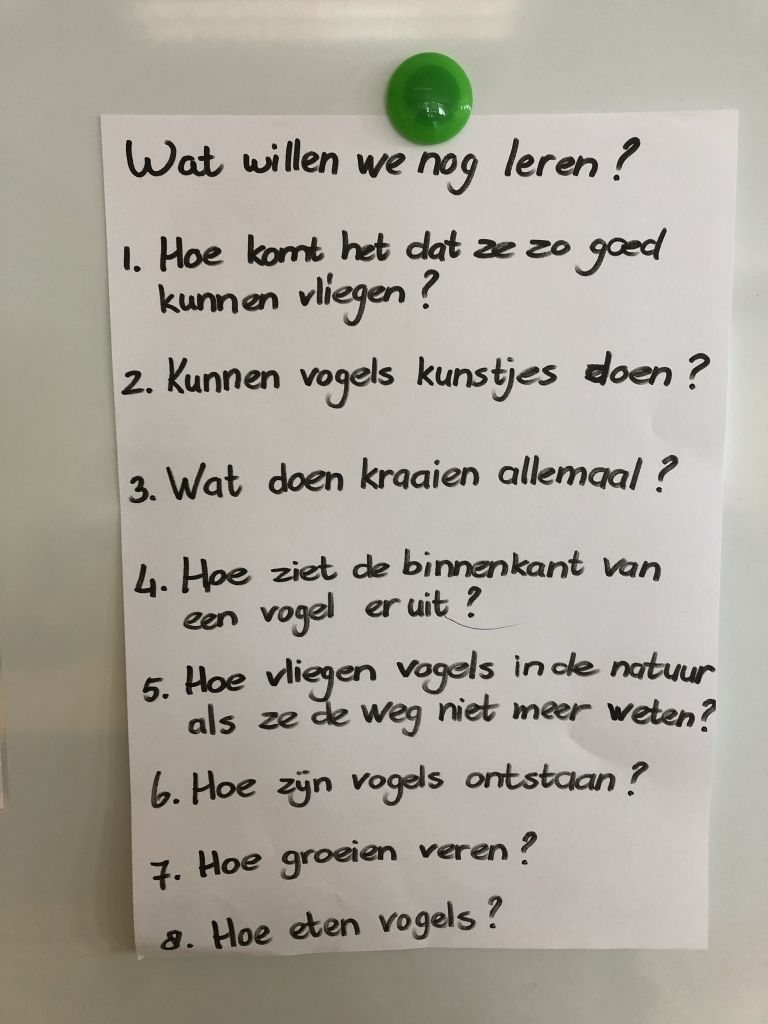 Wat willen we nog leren?
1. Hoe komt het dat ze zo goed
kunnen vliegen?
2. Kunnen vogels kunstjes doen?
3. Wat doen kraaien allemaal?
4. Hoe ziet de binnenkant van
een vogel er uit?
5. Hoe vliegen vogels in de natuur
als ze de weg niet meer weten?
6. Hoe zijn vogels ontstaan?
7. Hoe groeien veren?
8. Hoe eten vogels?